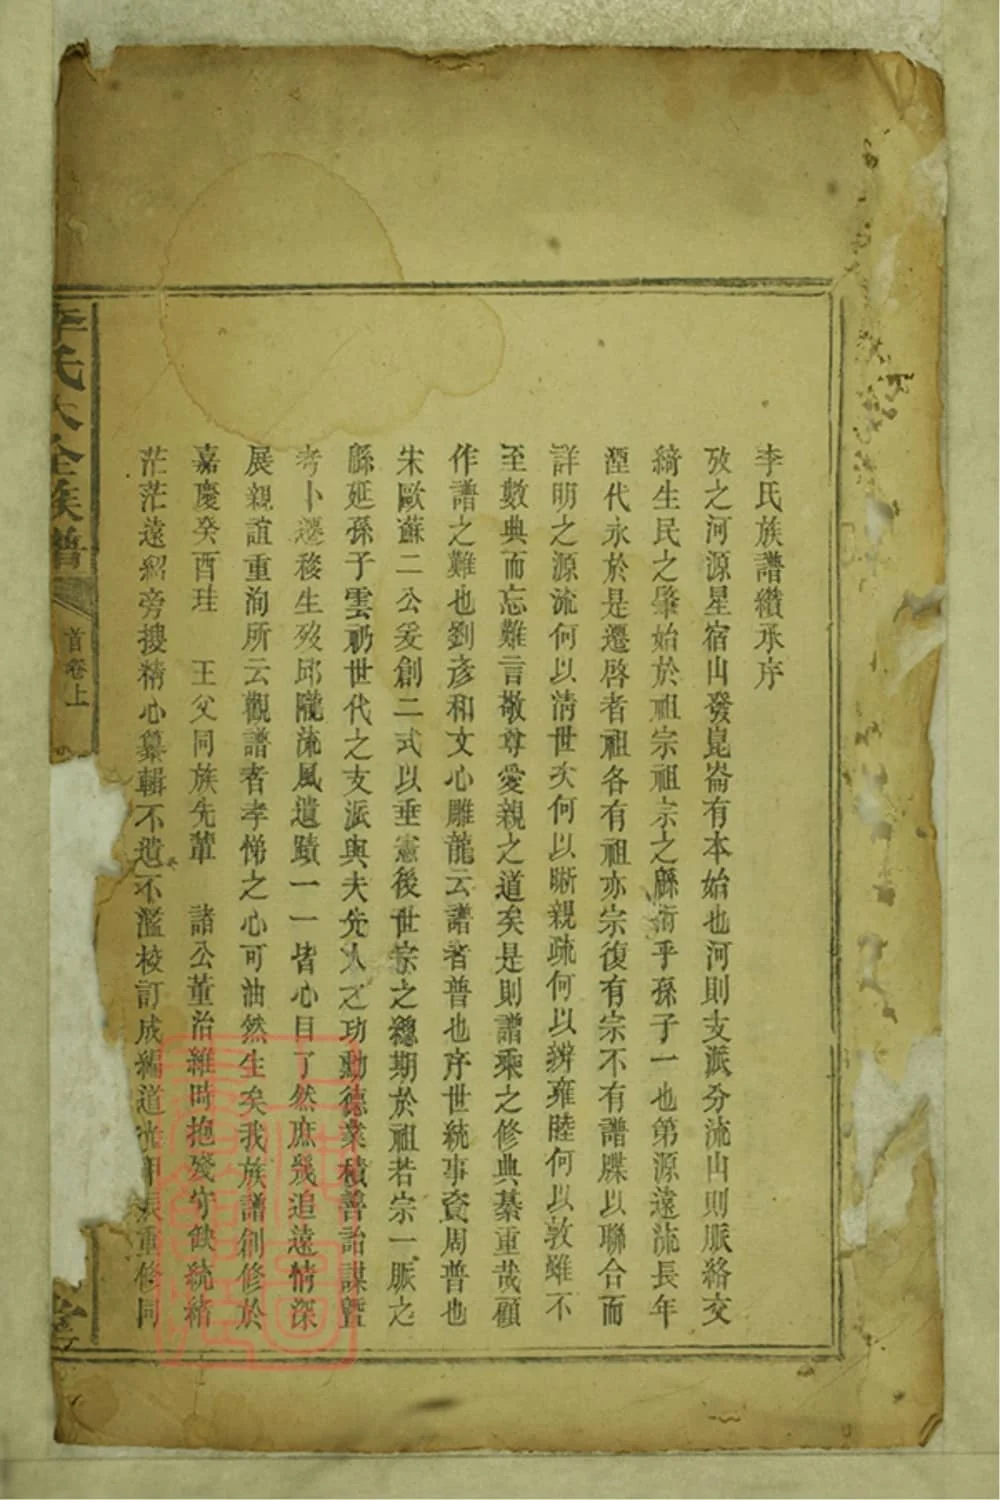 李氏族譜纘承序
攷之河源星宿山發崑崙有本始也河則支派分流山則脈絡交
綺生民之肇始於祖宗祖宗之緜衍乎孫子一也第源遠流長年
湮代永於是遷啓者祖各有祖亦宗復有宗不有譜牒以聯合而
詳明之源流何以清世次何以晰親疏何以辨雍睦何以敦雖不
至數典而忘難言敬尊愛親之道矣是則譜乘之修典綦重哉顧
作譜之難也劉彥和文心雕龍云譜者普也序世統事資周普也
朱歐蘇二公爰創二式以垂憲後世宗之總期於祖若宗一脈之
緜延孫子雲礽世代之支派與夫先人之功勳德業積善詒謀暨
考卜遷移生歿邱隴流風遺蹟一一皆心目了然庶幾追遠情深
展親誼重洵所云觀譜者孝悌之心可油然生矣我族譜創修於
嘉慶癸酉珪 王父同族先輩 諸公董治維時抱殘守缺統緒
茫茫遠紹旁搜精心纂輯不遺不濫校訂成編道光甲辰重修同
李氏大全族譜 首卷上 堂